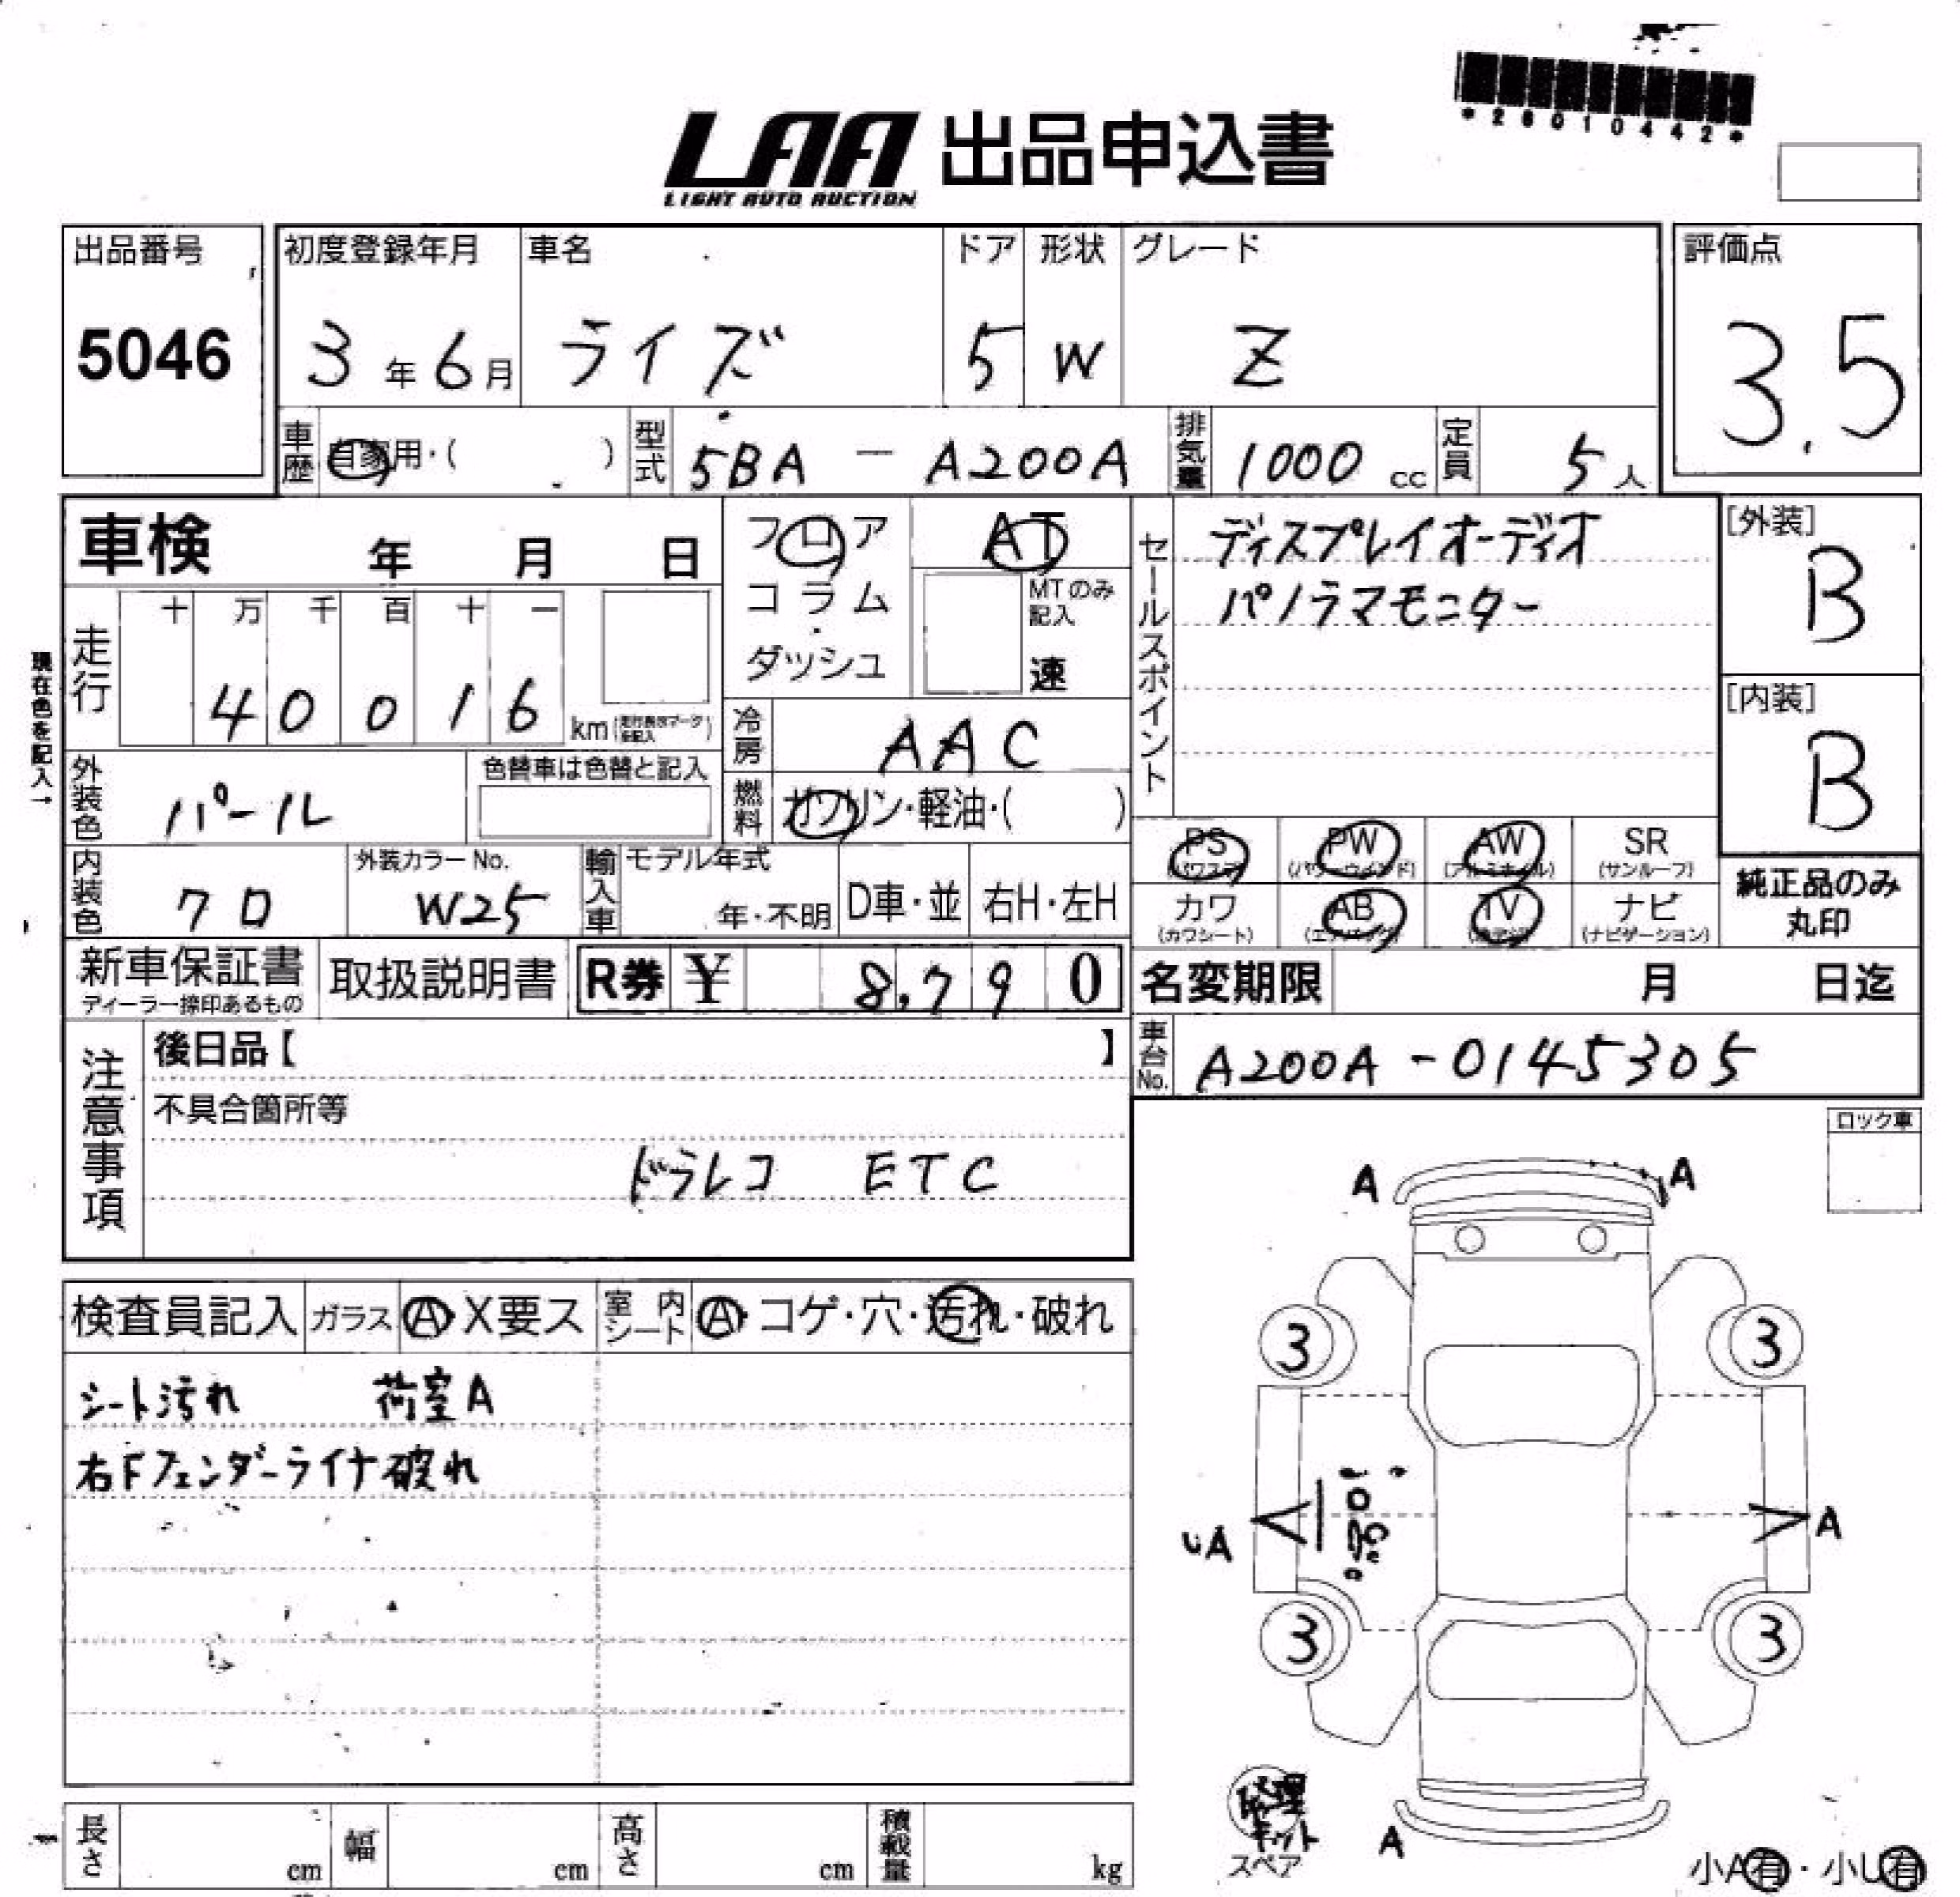 *26010442*
LAA 出品申込書
LIGHT AUTO AUCTION
出品番号
5046
初度登録年月
3年6月
車名
ライズ
ドア
5
形状
W
グレード
Z
評価点
3.5
車歴
自家用・( )
型式
5BA - A200A
排気量
1000 cc
定員
5人
車検 年 月 日
フロア
コラム
ダッシュ
AT
MTのみ
記入
速
セールスポイント
ディスプレイオーディオ
パノラマモニター
[外装]
B
[内装]
B
現在色を記入→
走行
十 万 千 百 十 一
4 0 0 1 6 km
冷房
AAC
燃料
ガソリン・軽油・( )
外装色
パール
色替車は色替と記入
内装色
クロ
外装カラーNo.
W25
輸入車
モデル年式
年・不明
D車・並
右H・左H
PS
(パワステ)
PW
(パワーウインド)
AW
(アルミホイル)
SR
(サンルーフ)
カワ
(カワシート)
AB
(エアバッグ)
TV
ナビ
(ナビゲーション)
純正品のみ
丸印
新車保証書
ディーラー捺印あるもの
取扱説明書
R券 ¥ 8,790
名変期限 月 日迄
車台No.
A200A-0145305
注意事項
後日品【 】
不具合箇所等
ドラレコ ETC
ロック車
検査員記入
ガラス
A・X要ス
室内シート
A・コゲ・穴・汚れ・破れ
シート汚れ 荷室A
右Fフェンダーライナ破れ
A A
3 3
UA A
3 3
A
修理
キット
スペア
小A有・小U有
長さ cm
幅 cm
高さ cm
積載量 kg